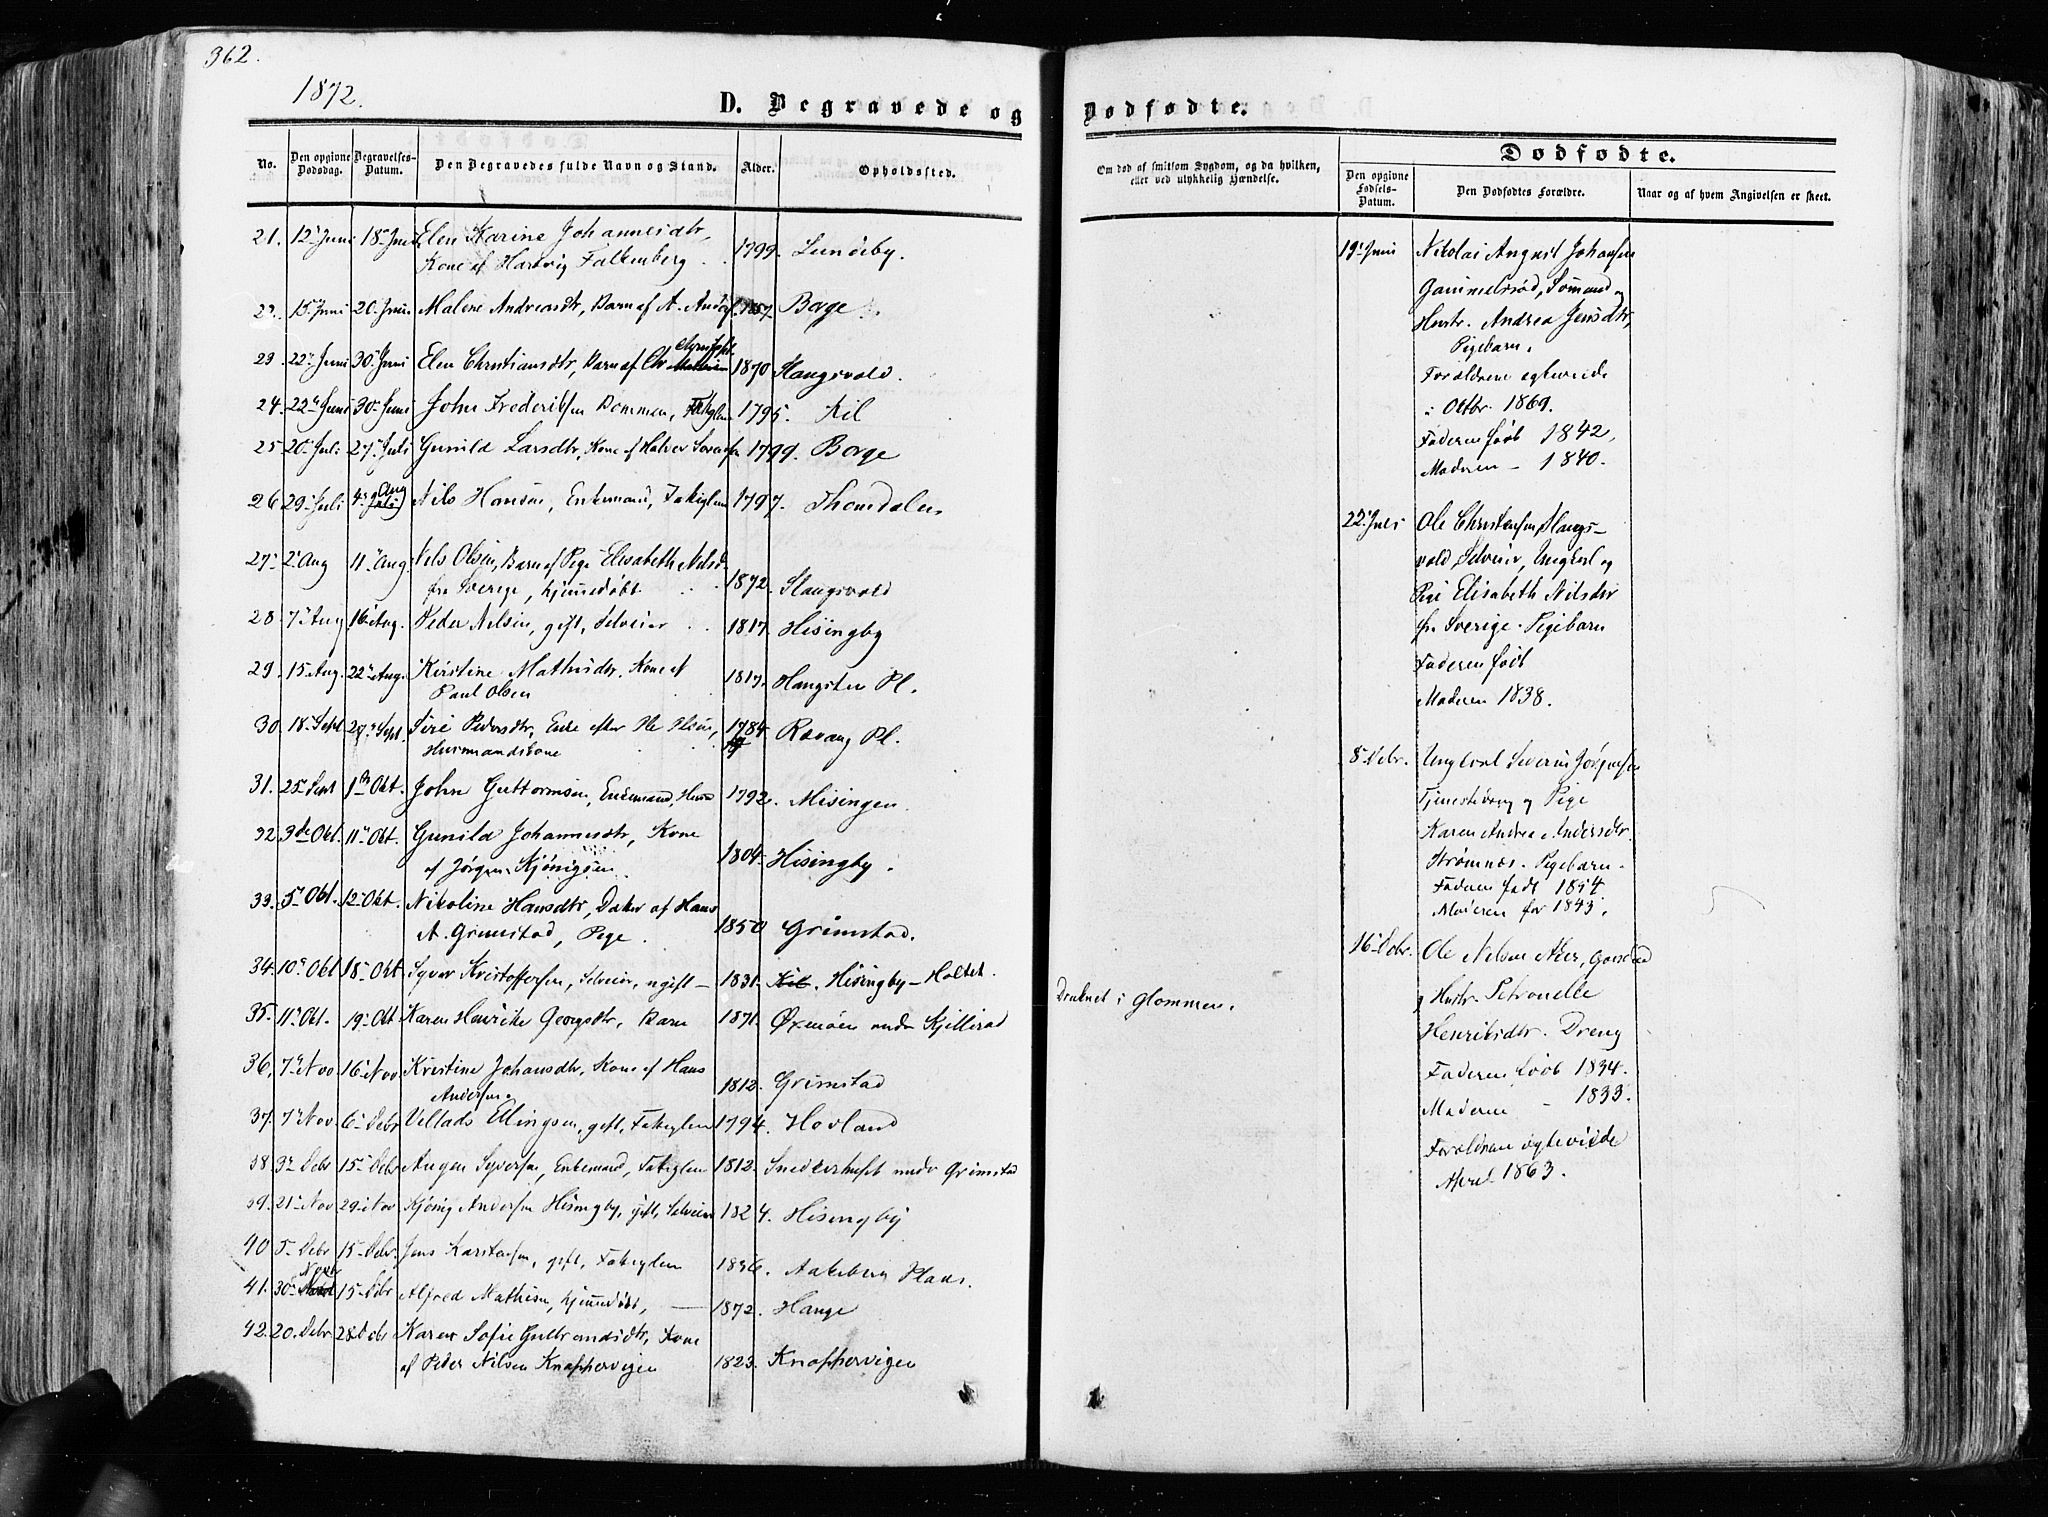 362.
1872.
D. Begravede og Dødfødte.
No. Den opgivne Dødsdag. Begravelses-Datum. Den Begravedes fulde Navn og Stand. Alder. Opholdssted.
Om død af smitsom Sygdom, og da hvilken, eller ved ulykkelig Hændelse.
Dødfødte.
Den opgivne Fødsels-Datum. Den Dødfødtes Forældre. Naar og af hvem Angivelsen er skeet.
21. 12' Juni 18' Juni Elen Karine Johannesdtr,
Kone af Hartvig Falkenberg 1799. Lundeby.
22. 15' Juni 20' Juni Malene Andreasdtr, Barn af A. Borge
23. 22' Juni 30' Juni Elen Christiansdtr, Barn af Chr 1870 Haugsvold.
24. 22' Juni 30' Juni John Frederiksen Dommen, Fatiglem 1795. Kil
25 20' Juli 27' Juli Gunild Larsdtr, Kone af Halvor 1799. Borge
26 29' Juli 4' Aug Nils Hansen, Enkemand, Fatiglem 1797. Thomdalen
27 2' Aug 11' Aug. Nels Olsen, Barn af Pige Elisabeth Nilsd
fra Sverige, hjemmedøbt 1872. Haugsvold
28 7' Aug 16' Aug. Peder Nilsen, gift, Selveier 1817. Hisingby
29. 15 Aug. 22' Aug. Kirstine Mathisdtr. Kone af
Paul Olsen 1817. Haugsten Pl.
30 18' Sept 27' Sept. Siri Pedersdtr, Enke efter Ole Olsen,
Husmandskone 1784 Ravang Pl.
31. 25' Sept 1' Okt. John Guttormsen, Enkemand, 1792. Misingen
32 3de Okt. 11' Okt. Gunild Johannesdtr, Kone
af Jørgen Kjønigsen 1804. Hisingby.
33. 5' Okt. 12' Okt. Nikoline Hansdtr, Datter af Hans
A. Grimstad, Pige 1850 Grimstad.
34. 10' Okt 18' Okt Syver Kristoffersen, Selveier, ugift – 1831. Kil. Hisingby – Holtet.
Druknet i Glommen.
35. 11' Okt. 19' Okt Karen Henrike Georgsdtr, Barn 1871. Øxenøen under Kjellerød
36. 7' Nov 16' Nov Kristine Johansdtr, Kone af Hans
Andersen. 1812. Grimstad
37. 7' Nov. 6' Debr Vellads Ellingsen, gift, Fatiglem 1794. Hovland
38 3' Debr 15' Debr Augen Syversen, Enkemand, Fatiglem 1812. under Grimstad
39. 21' Nov 29' Nov Kjønig Andersen Hisingby, gift, Selveier 1824. Hisingby
40 5' Debr 15' Debr. Jens Karstensen, gift, Fatiglem Hans.
41. 30' Novbr 15' Debr Alfred Mathisen, hjemmedøbt, – 1872. Hauge
42. 20. Debr 28 Debr Karen Sofie Gulbrandsdtr, Kone
af Peder Nilsen Knappervigen 1823. Knappervigen
19' Juni Nikolai August Johansen
Gammelsrød, Sømand og
Hustr. Andrea Jensdtr,
Pigebarn.
Forældrene egteviede
i Octbr. 1869.
Faderen født 1842,
Moderen – 1840.
22' Juli Ole Christensen, Haugs-
vold, Selveier, Ungkarl og
Pige Elisabeth Nilsdtr
fra Sverige. Pigebarn
Faderen født
Moderen 1838.
8' Debr. Ungkarl Severin Jørgensen
Tjenestedreng og Pige
Karen Andrea Andersdtr
Strømnæs. Pigebarn.
Faderen født 1854
Moderen før 1843.
16' Debr. Ole Nilsen
og Hustr. Petronelle
Henriksdtr. Dreng
Faderen født 1834.
Moderen – 1833.
Forældrene egteviede
April 1863.